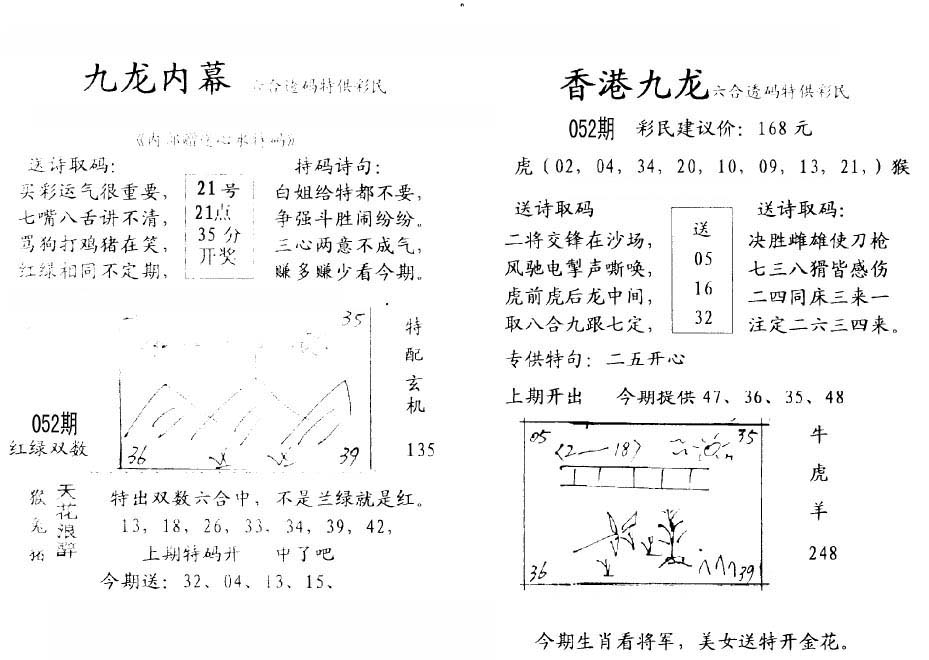 九龙内幕 六合透码特供彩民
《内部赠送心水特码》
送诗取码:
买彩运气很重要,
七嘴八舌讲不清,
骂狗打鸡猪在笑,
红绿相同不定期,
21号
21点
35分
开奖
持码诗句:
白姐给特都不要,
争强斗胜闹纷纷。
三心两意不成气,
赚多赚少看今期。
052期
红绿双数
35
36
39
特配玄机
135
猴兔猪
天花浪醉
特出双数六合中, 不是兰绿就是红。
13, 18, 26, 33, 34, 39, 42,
上期特码开 中了吧
今期送: 32、04、13、15、
香港九龙 六合透码特供彩民
052期 彩民建议价: 168元
虎 (02, 04, 34, 20, 10, 09, 13, 21,) 猴
送诗取码
二将交锋在沙场,
风驰电掣声嘶唤,
虎前虎后龙中间,
取八合九跟七定,
送
05
16
32
送诗取码:
决胜雌雄使刀枪
七三八猾皆感伤
二四同床三来一
注定二六三四来。
专供特句: 二五开心
上期开出 今期提供 47、36、35、48
05
35
36
39
牛
虎
羊
248
今期生肖看将军, 美女送特开金花。